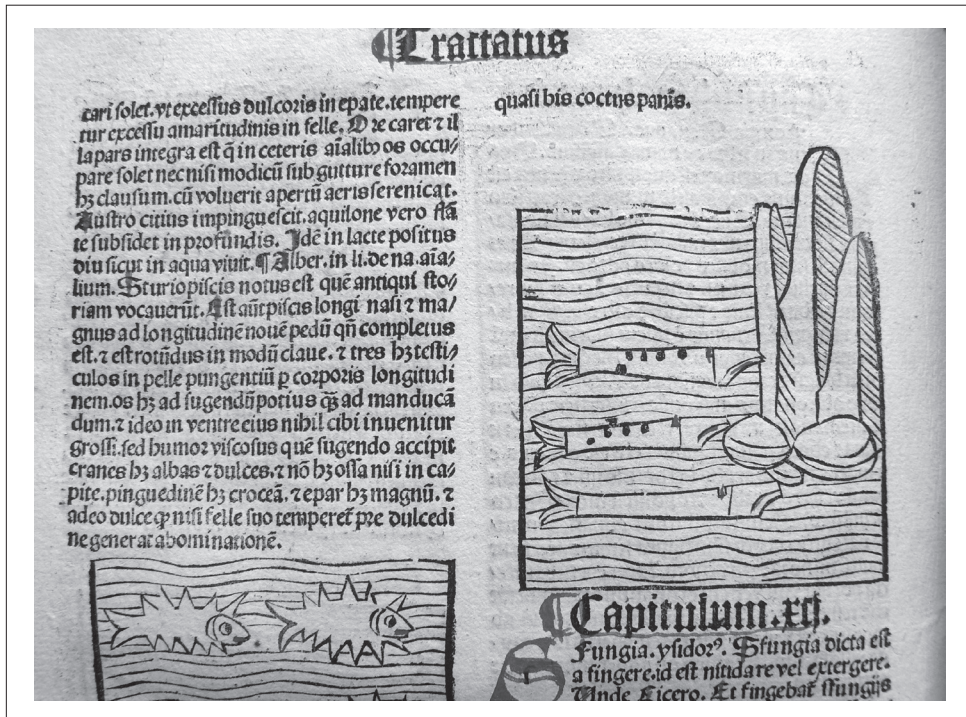 ¶Tractatus
cari solet. vt excessus dulcoris in epate. tempere
tur excessu amaritudinis in felle. Ore caret ⁊ il
la pars integra est q̄ in ceteris aīalibꝰ os occu⸗
pare solet nec nisi modicū sub gutture foramen
hꝫ clausum. cū voluerit apertū aeris serenitat.
Austro citius impinguescit. aquilone vero flā
te subsidet in profundis. Idē in lacte positus
diu sicut in aqua viuit. ¶ Alber. in li. de na. aīa⸗
lium. Sturio piscis notus est quē antiqui sto⸗
riam vocauerūt. Est aūt piscis longi nasi ⁊ ma⸗
gnus ad longitudinē nouē pedū qn̄ completus
est. ⁊ est rotūdus in modū claue. ⁊ tres hꝫ testi⸗
culos in pelle pungentiū ꝑ corporis longitudi
nem. os hꝫ ad sugendū potius ꝙꝫ ad manducā
dum. ⁊ ideo in ventre eius nihil cibi inuenitur
grossi. sed humor viscosus quē sugendo accipit
cranes hꝫ albas ⁊ dulces. ⁊ nō hꝫ ossa nisi in ca⸗
pite. pinguedinē hꝫ croceā. ⁊ epar hꝫ magnū. ⁊
adeo dulce ꝙ nisi felle suo temperet̄ pre dulcedi
ne generat abominationē.
quasi bis coctus panis.
¶Capitulum. xcij.
SFungia. ysidorꝰ. Sfungia dicta est
a fingere. id est nitidare vel extergere.
Unde Cicero. Et fingebat̄ sfungijs